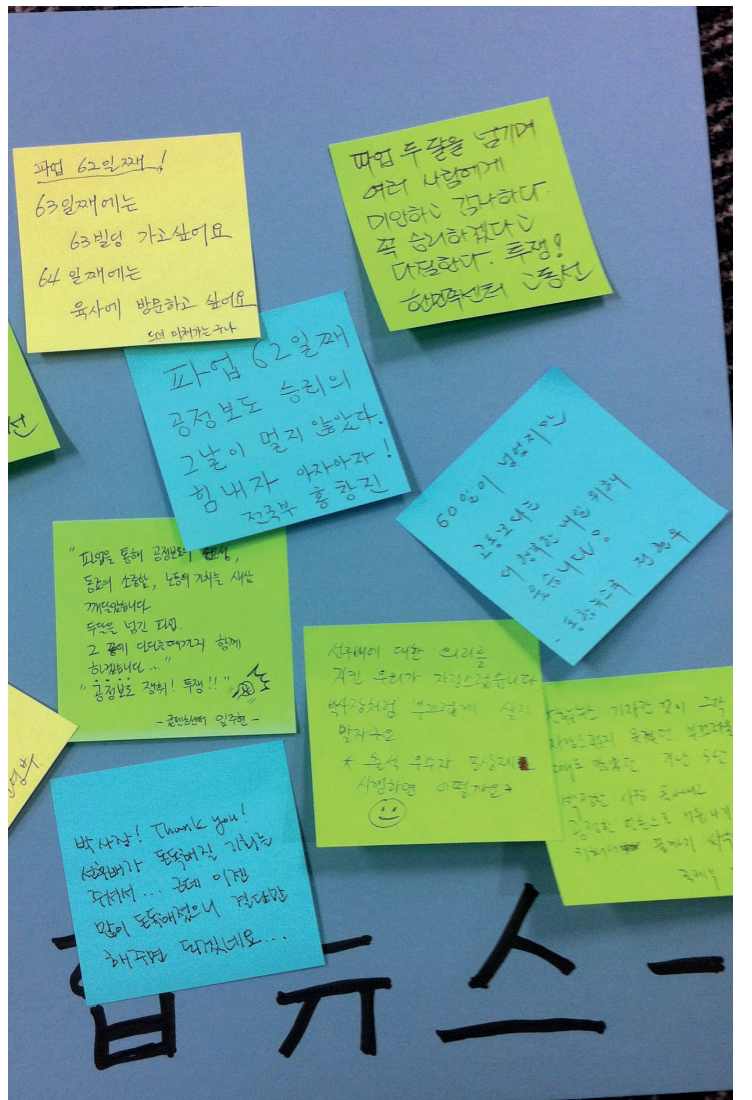 파업 62일째 !
63일째에는
63빌딩 가고싶어요
64 일째에는
육사에 방문하고 싶어요
느데 미쳐가는구나
파업 두 달을 넘기며
여러 사람에게
미안하고 감사하다.
꼭 승리하겠다고
다짐한다. 투쟁!
한민족센터
선
파업 62일째
공정보도 승리의
그날이 멀지 않았다.
힘내자 아자아자!
전국부 홍창진
60일이 넘었지만
고통보다는
더 행복한 내일 위해
웃습니다.
"파업을 통해 공정보도의
동료의 소중함, 노동의 가치를 새삼
깨달았습니다
두달을 넘긴 파업.
그 끝에 다다를때까지 함께
하겠습니다..."
"공정보도 쟁취! 투쟁!!"
- 콘텐츠센터 임주현 -
선후배에 대한 의리를
지킨 우리가 자랑스럽습니다.
박사장처럼 부끄럽게 살지
말자구요
* 출석 우수자 도상제
시행하면 어떨까요?
뉴스 기자란 것이 그닥
자랑스럽지 못했던
지난 3년
사장
끝까지
국제부
박사장! Thank you!
선후배가 돈독해질 기회를
주셔서... 근데 이젠
많이 돈독해졌으니 결단만
해주면 되겠네요...
합뉴스